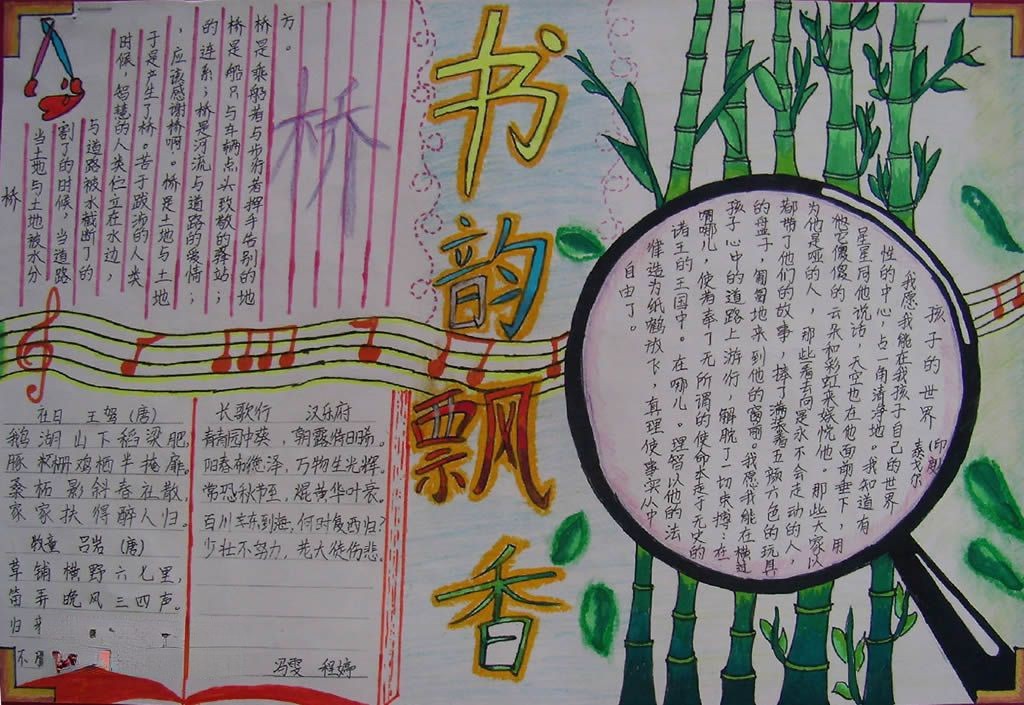 书韵飘香
桥
桥
当土地与土地被水分
割了的时候，当道路
与道路被水截断了的
时候，智慧的人类伫立在水边，
于是产生了桥。苦于跋涉的人类
，应该感谢桥啊。桥是土地与土地
的连系；桥是河流与道路的爱情；
桥是船只与车辆点头致敬的驿站；
桥是乘船者与步行者挥手告别的地
方。
社日 王驾（唐）
鹅湖山下稻梁肥，
豚栅鸡栖半掩扉。
桑柘影斜春社散，
家家扶得醉人归。
牧童 吕岩（唐）
草铺横野六七里，
笛弄晚风三四声。
归
不
长歌行 汉乐府
青青园中葵，朝露待日晞。
阳春布德泽，万物生光辉。
常恐秋节至，焜黄华叶衰。
百川东到海，何时复西归？
少壮不努力，老大徒伤悲。
冯雯 程婷
孩子的世界
（印度）泰戈尔
我愿我能在我孩子自己的世界
性的中心，占一角清净地。我知道有
星星同他说话，天空也在他面前垂下，用
他它傻傻的云朵和彩虹来娱悦他。那些大家以
为他是哑的人，那些看去向是永不会走动的人，
都带了他们的故事，捧了满装着五颜六色的玩具
的盘子，匍匐地来到他的窗前。我愿我能在横过
孩子心中的道路上游行，解脱了一切束缚：在
哪儿，使者奉了无所谓的使命奔走于无史的
诸王的王国中。在哪儿。理智以他的法
律造为纸鹤放下，真理使事实从中
自由了。